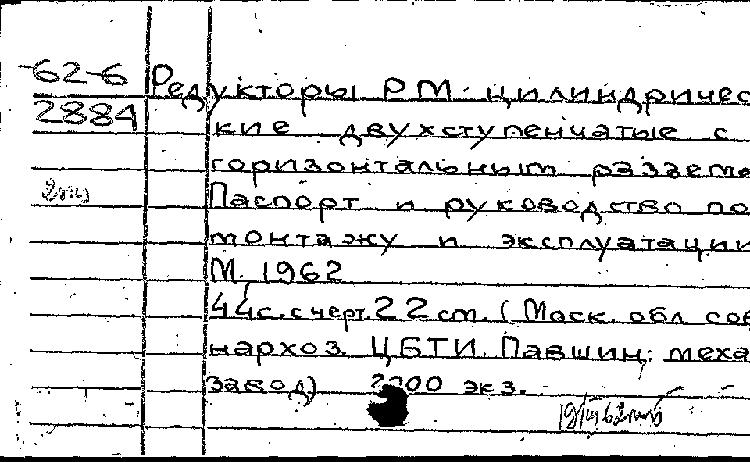 -62-6
2884
Редукторы РМ цилиндричес
кие двухступенчатые с
горизонтальным разъемо
Паспорт и руководство по
монтажу и эксплуатации
М. 1962
44с. с черт. 22 см. (Моск. обл. сов
нархоз. ЦБТИ. Павшин. меха
завод) экз.